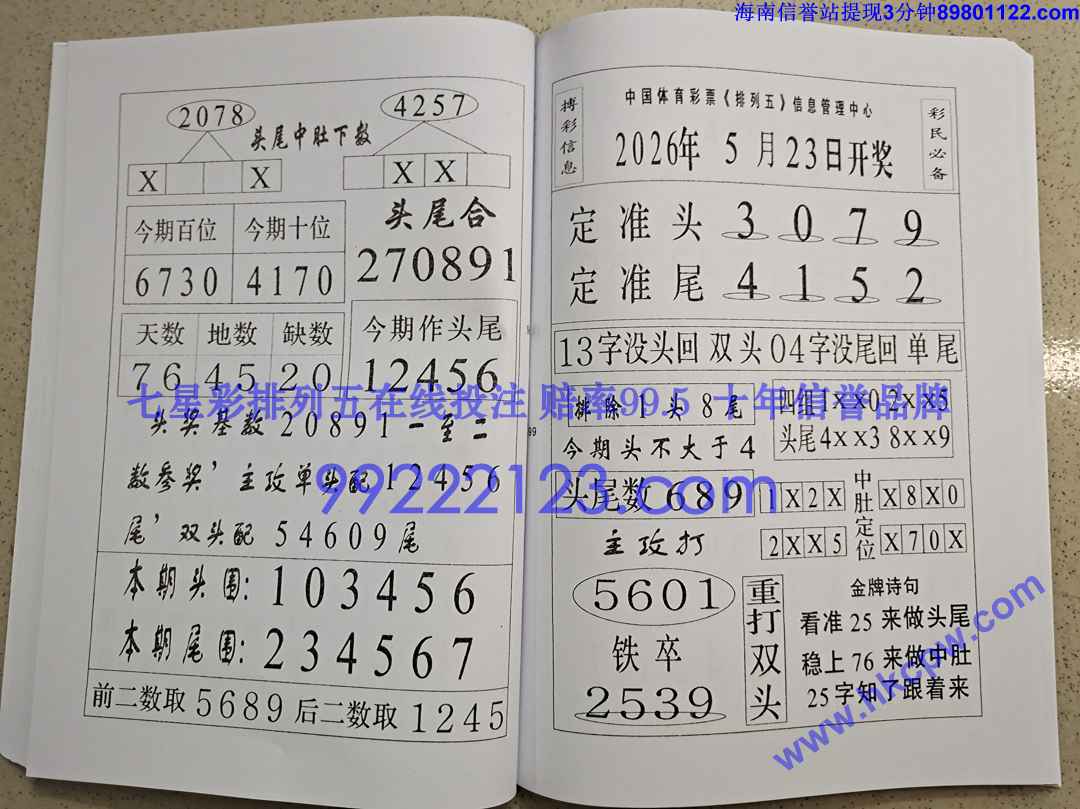 海南信誉站提现3分钟89801122.com
2078
4257
头尾中肚下数
X X
X X
今期百位 今期十位
6730 4170
头尾合
270891
天数 地数 缺数
76 45 20
今期作头尾
12456
头奖基数20891一至二
数参奖，主攻单头配12456
尾，双头配54609尾
本期头围:103456
本期尾围:234567
前二数取5689后二数取1245
99
搏彩信息
中国体育彩票《排列五》信息管理中心
2026年5月23日开奖
彩民必备
定准头3079
定准尾4152
13字没头回双头04字没尾回单尾
排除1头8尾
今期头不大于4
四组1XX0 2XX5
头尾4XX3 8XX9
头尾数689
主攻打
1X2X
2XX5
中肚定位
X8X0
X70X
5601
铁卒
2539
重打双头
金牌诗句
看准25来做头尾
稳上76来做中肚
25字知了跟着来
七星彩排列五在线投注 赔率99.5 十年信誉品牌
99222123.com
www.hkcpw.com